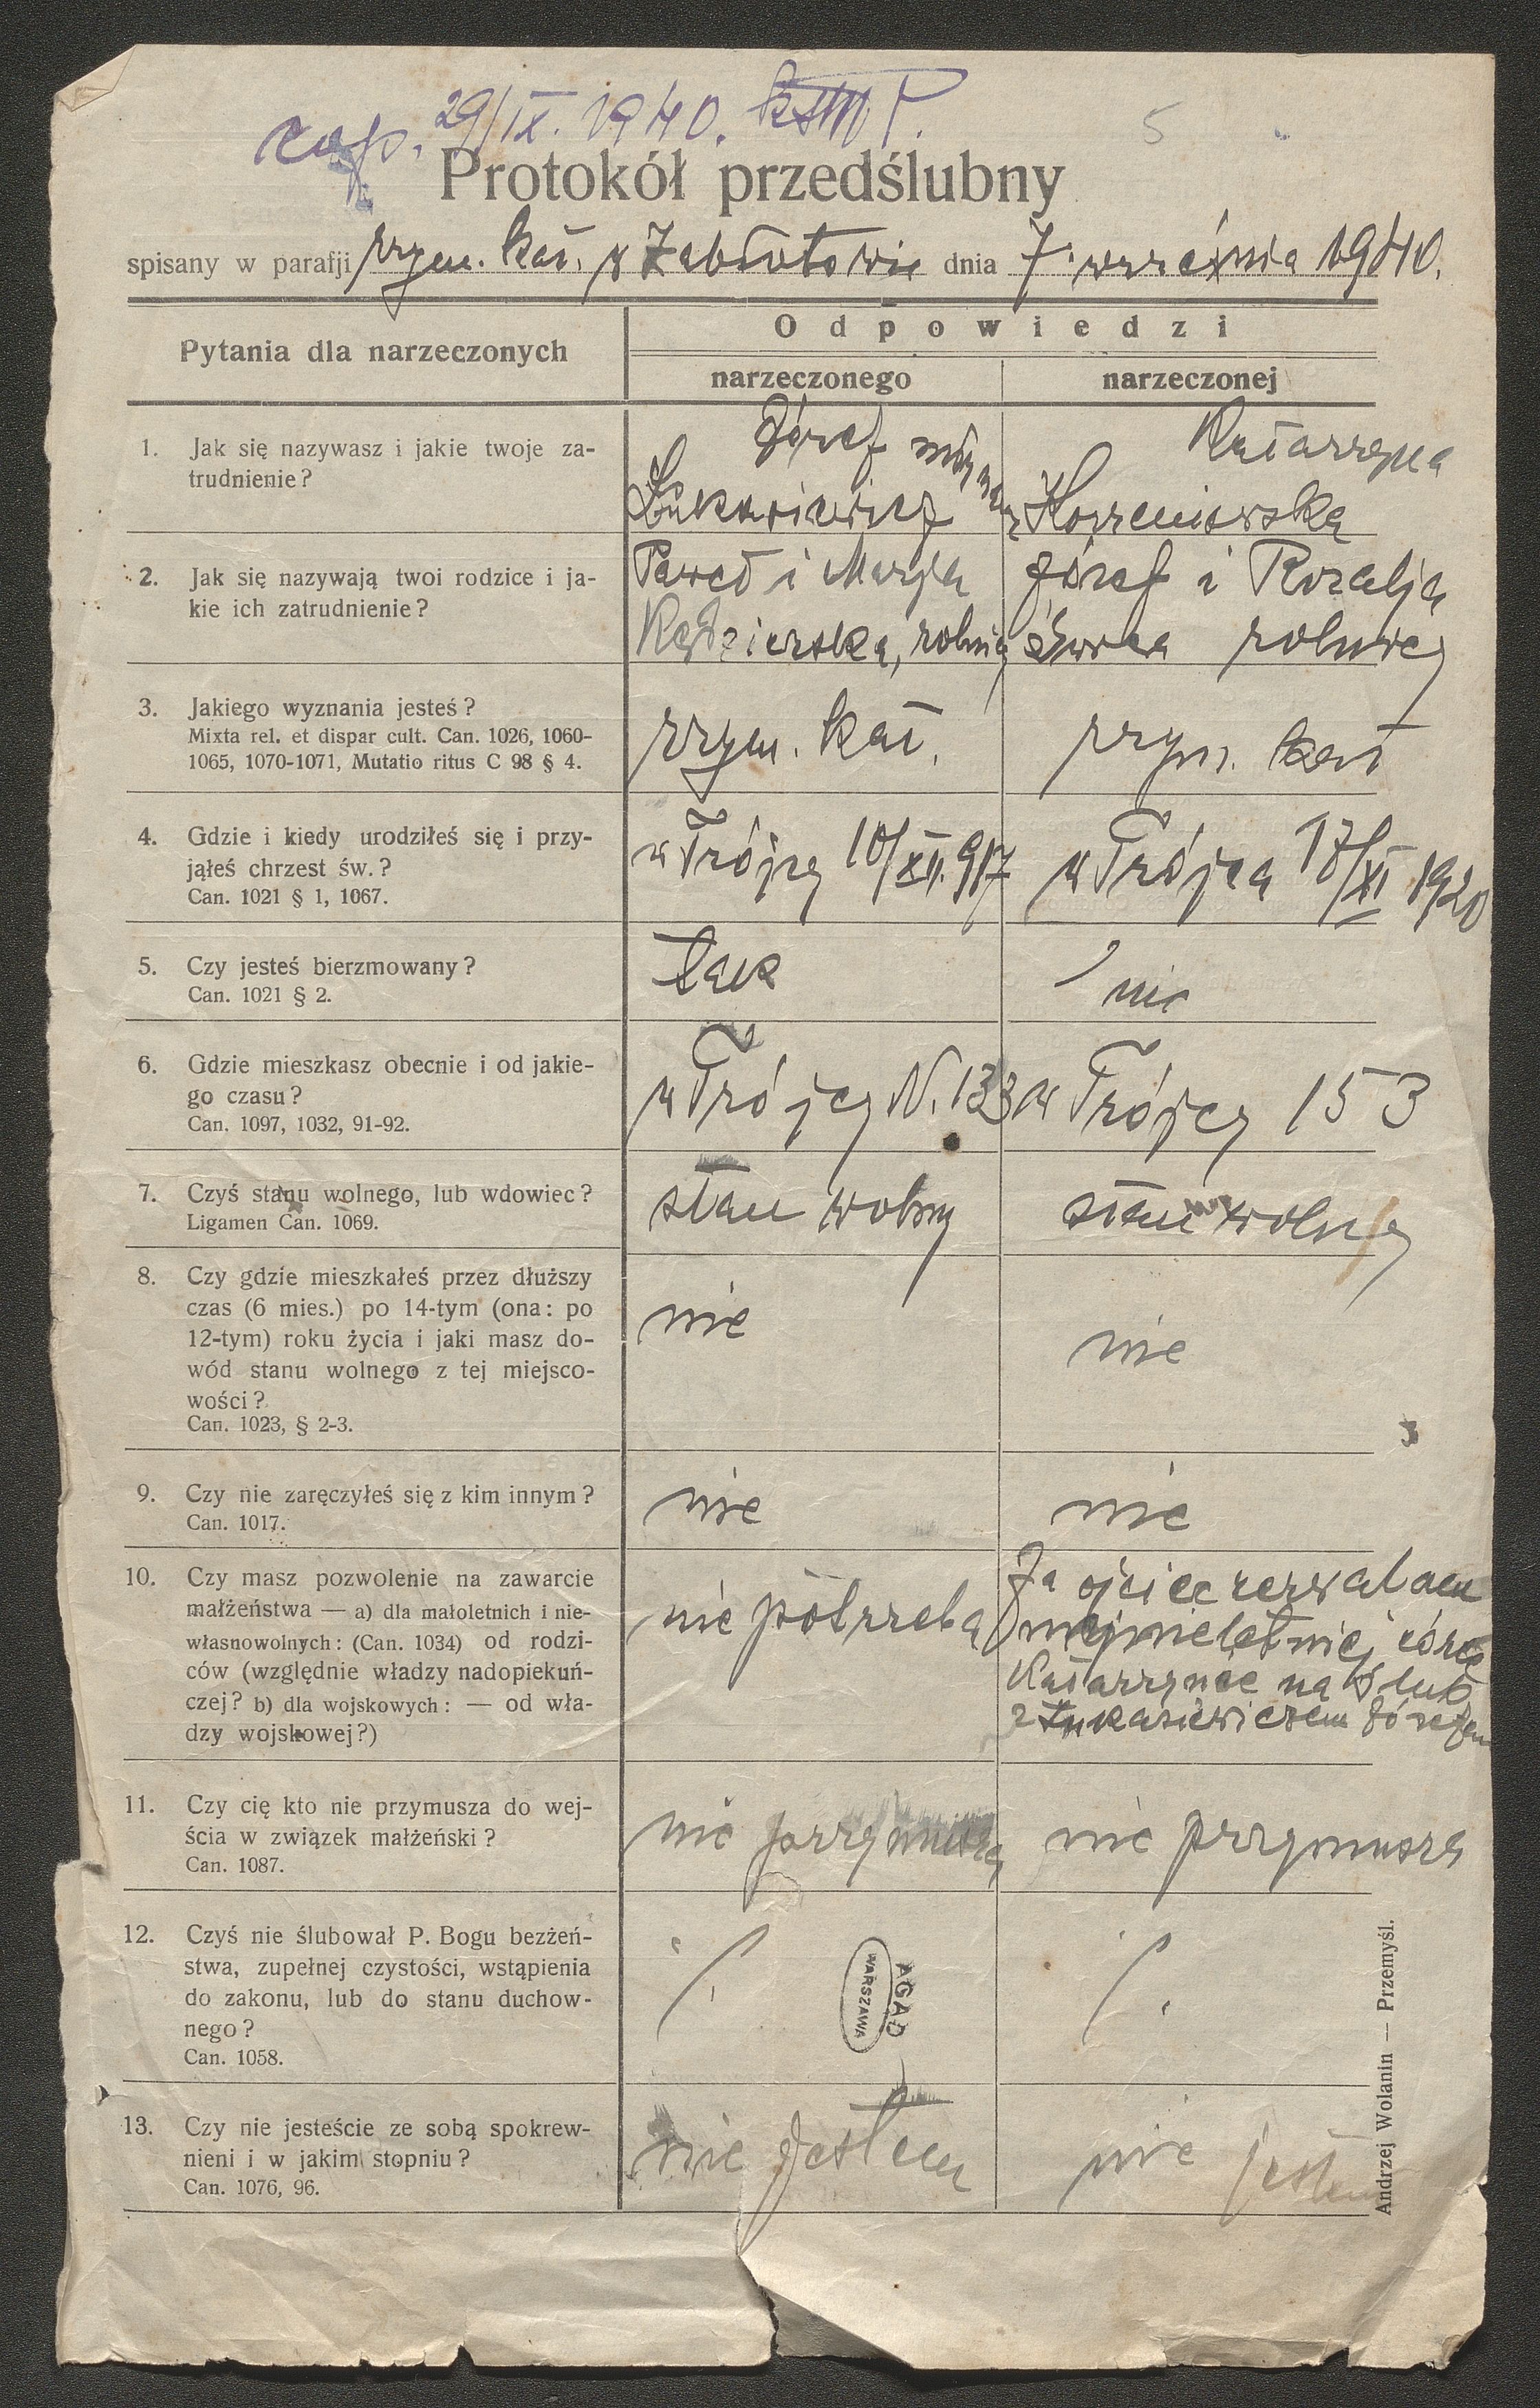 cop. 29/IX. 1940.
5
Protokół przedślubny
spisany w parafji rzym. kat. w Zabłotowie dnia 7. września 1940.
Pytania dla narzeczonych
Odpowiedzi
narzeczonego
narzeczonej
1. Jak się nazywasz i jakie twoje za-
trudnienie?
Józef
Łukasiewicz
Katarzyna
Korzeniowska
2. Jak się nazywają twoi rodzice i ja-
kie ich zatrudnienie?
Paweł i Marja
Kędzierska, rolnicy
Józef i Rozalja
rolnicy
3. Jakiego wyznania jesteś?
Mixta rel. et dispar cult. Can. 1026, 1060-
1065, 1070-1071, Mutatio ritus C 98 § 4.
rzym. kat.
rzym. kat
4. Gdzie i kiedy urodziłeś się i przy-
jąłeś chrzest św.?
Can. 1021 § 1, 1067.
w Trójcy 10/XII.917
w Trójca 17/XI 1920
5. Czy jesteś bierzmowany?
Can. 1021 § 2.
tak
nie
6. Gdzie mieszkasz obecnie i od jakie-
go czasu?
Can. 1097, 1032, 91-92.
w Trójcy N. 133
w Trójcy 153
7. Czyś stanu wolnego, lub wdowiec?
Ligamen Can. 1069.
stan wolny
stan wolny
8. Czy gdzie mieszkałeś przez dłuższy
czas (6 mies.) po 14-tym (ona: po
12-tym) roku życia i jaki masz do-
wód stanu wolnego z tej miejsco-
wości?
Can. 1023, § 2-3.
nie
nie
9. Czy nie zaręczyłeś się z kim innym?
Can. 1017.
nie
nie
10. Czy masz pozwolenie na zawarcie
małżeństwa — a) dla małoletnich i nie-
własnowolnych: (Can. 1034) od rodzi-
ców (względnie władzy nadopiekuń-
czej? b) dla wojskowych: — od wła-
dzy wojskowej?)
nie potrzeba
Ja ojciec zezwalam
mej nieletniej córce
Katarzynie na ślub
z Łukasiewiczem Józefem
11. Czy cię kto nie przymusza do wej-
ścia w związek małżeński?
Can. 1087.
nie przymusza
nie przymusza
12. Czyś nie ślubował P. Bogu bezżeń-
stwa, zupełnej czystości, wstąpienia
do zakonu, lub do stanu duchow-
nego?
Can. 1058.
AGAD
WARSZAWA
13. Czy nie jesteście ze sobą spokrew-
nieni i w jakim stopniu?
Can. 1076, 96.
nie jestem
nie jestem
Andrzej Wolanin — Przemyśl.